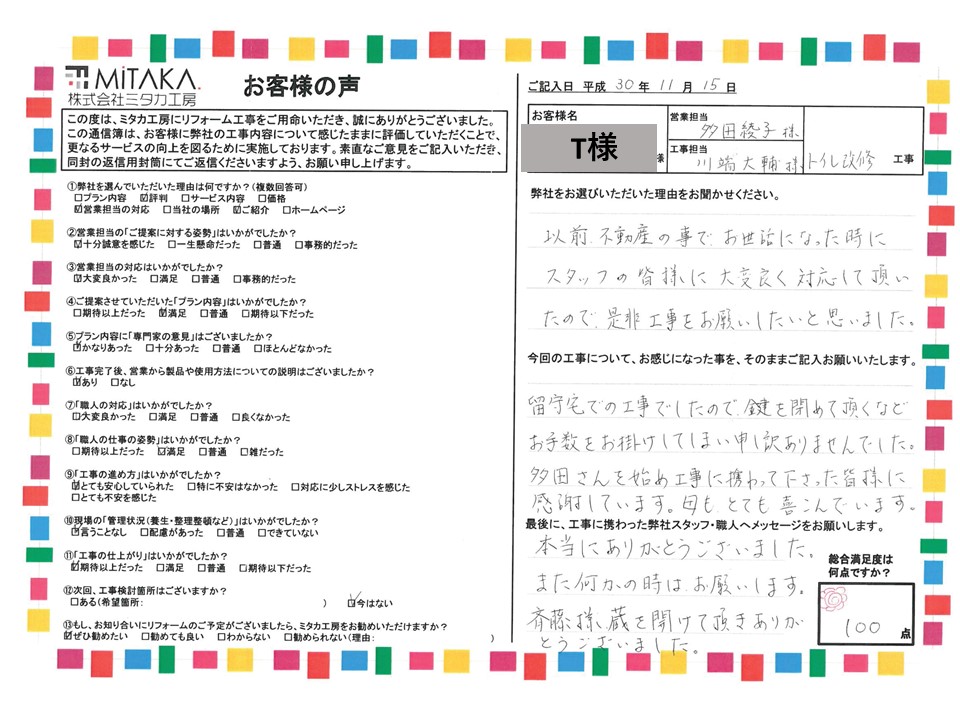 MiTAKA.
株式会社ミタカ工房
お客様の声
この度は、ミタカ工房にリフォーム工亭をご用命いただき、誠にありがとうございました。
この通信簿は、お客様に弊社の工事内容について感じたままに評価していただくことで、
更なるサービスの向上を図るために実施しております。素直なご意見をご記入いただき、
同封の返信用封筒にてご返信くださいますよう、お願い申し上げます。
①弊社を選んでいただいた理由は何ですか？（複数回答可）
□プラン内容 ☑評判 □サービス内容 □価格
☑営業担当の対応 □当社の場所 ☑ご紹介 □ホームページ
②営業担当の「ご提案に対する姿勢」はいかがでしたか？
☑十分誠意を感じた □一生懸命だった □普通 □事務的だった
③営業担当の対応はいかがでしたか？
☑大変良かった □満足 □普通 □事務的だった
④ご提案させていただいた「プラン内容」はいかがでしたか？
□期待以上だった ☑満足 □普通 □期待以下だった
⑤プラン内容に「専門家の意見」はございましたか？
☑かなりあった □十分あった □普通 □ほとんどなかった
⑥工事完了後、営業から製品や使用方法についての説明はございましたか？
☑あり □なし
⑦「職人の対応」はいかがでしたか？
☑大変良かった □満足 □普通 □良くなかった
⑧「職人の仕事の姿勢」はいかがでしたか？
□期待以上だった ☑満足 □普通 □雑だった
⑨「工事の進め方」はいかがでしたか？
☑とても安心していられた □特に不安はなかった □対応に少しストレスを感じた
□とても不安を感じた
⑩現場の「管理状況（養生・整理整頓など）」はいかがでしたか？
☑言うことなし □配慮があった □普通 □できていない
⑪「工事の仕上がり」はいかがでしたか？
☑期待以上だった □満足 □普通 □期待以下だった
⑫次回、工事検討箇所はございますか？
□ある（希望箇所： ） ☑今はない
⑬もし、お知り合いにリフォームのご予定がございましたら、ミタカ工房をお勧めいただけますか？
☑ぜひ勧めたい □勧めても良い □わからない □勧められない（理由： ）
ご記入日 平成 30 年 11 月 15 日
お客様名
T様
様
営業担当
多田綾子様
工事担当
川端大輔様
トイレ改修 工事
弊社をお選びいただいた理由をお聞かせください。
以前、不動産の事で、お世話になった時に
スタッフの皆様に大変良く対応して頂い
たので、是非工事をお願いしたいと思いました。
今回の工事について、お感じになった事を、そのままご記入お願いいたします。
留守宅での工事でしたので、鍵を閉めて頂くなど
お手数をお掛けしてしまい申し訳ありませんでした。
多田さんを始め工事に携わって下さった皆様に
感謝しています。母も、とても喜こんでいます。
最後に、工事に携わった弊社スタッフ・職人へメッセージをお願いします。
本当にありがとうございました。
また何かの時は、お願いします。
斉藤様、蔵を開けて頂きありが
とうございました。
総合満足度は
何点ですか？
100 点